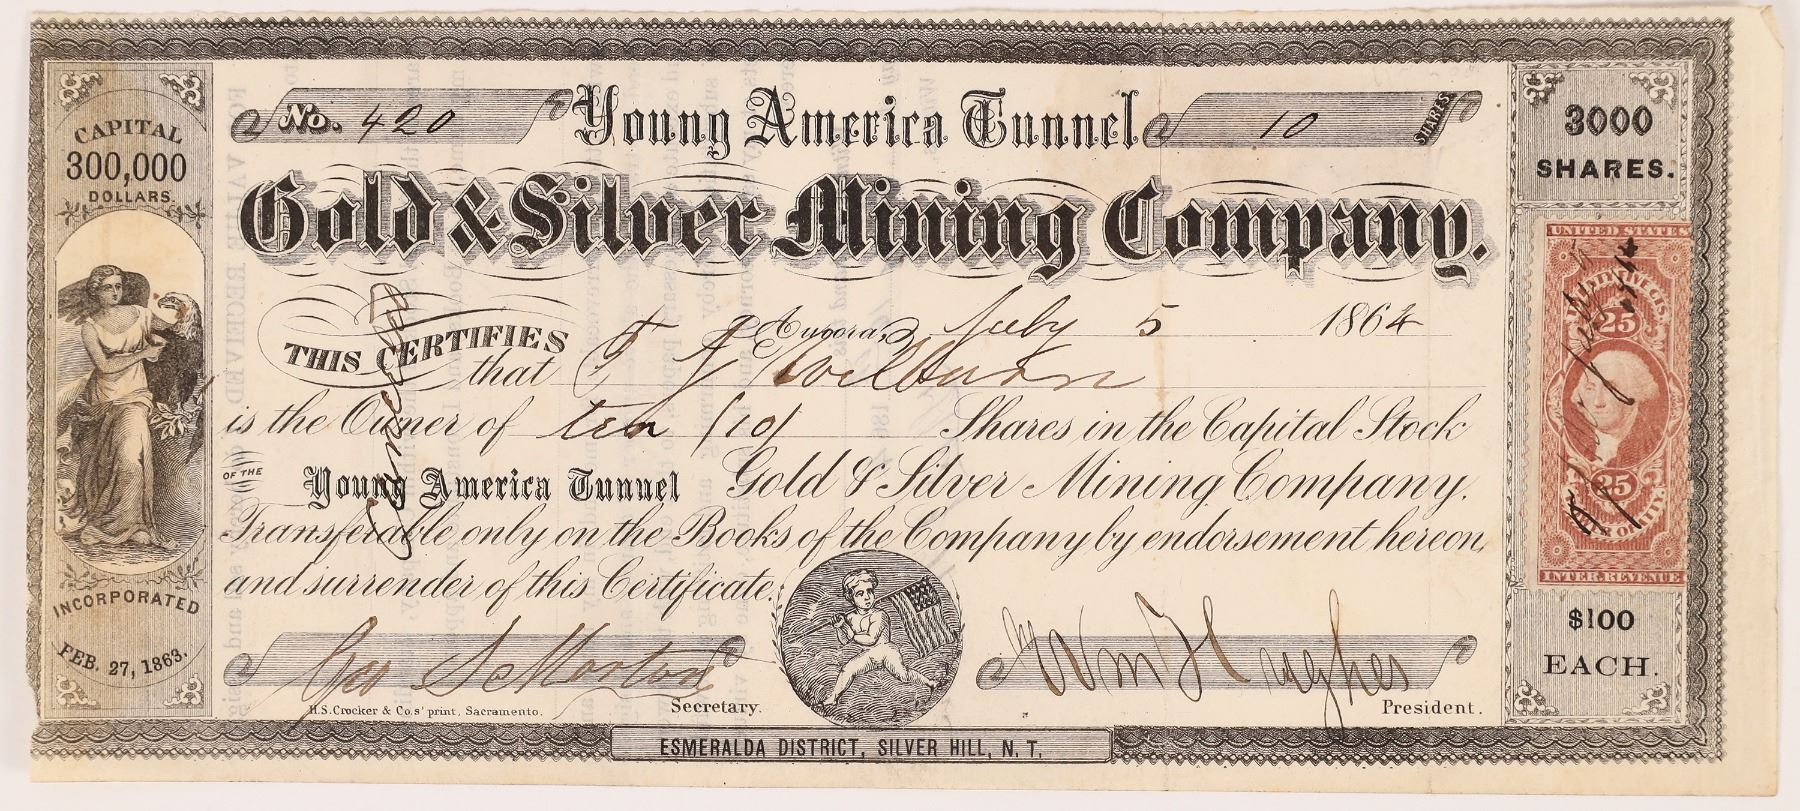 CAPITAL
300,000
DOLLARS.
INCORPORATED
FEB. 27, 1863.
No. 420
Young America Tunnel
10 SHARES.
Gold & Silver Mining Company.
Aurora, July 5 1864
THIS CERTIFIES
that T J Wilburn
is the Owner of ten (10) Shares in the Capital Stock
OF THE Young America Tunnel Gold & Silver Mining Company.
Transferable only on the Books of the Company by endorsement hereon,
and surrender of this Certificate.
Geo S Morton
Secretary.
Wm H Hughes
President.
H.S. Crocker & Co.s' print. Sacramento.
ESMERALDA DISTRICT, SILVER HILL, N. T.
Cancelled
3000
SHARES.
UNITED STATES
25
25
INTER. REVENUE
$100
EACH.